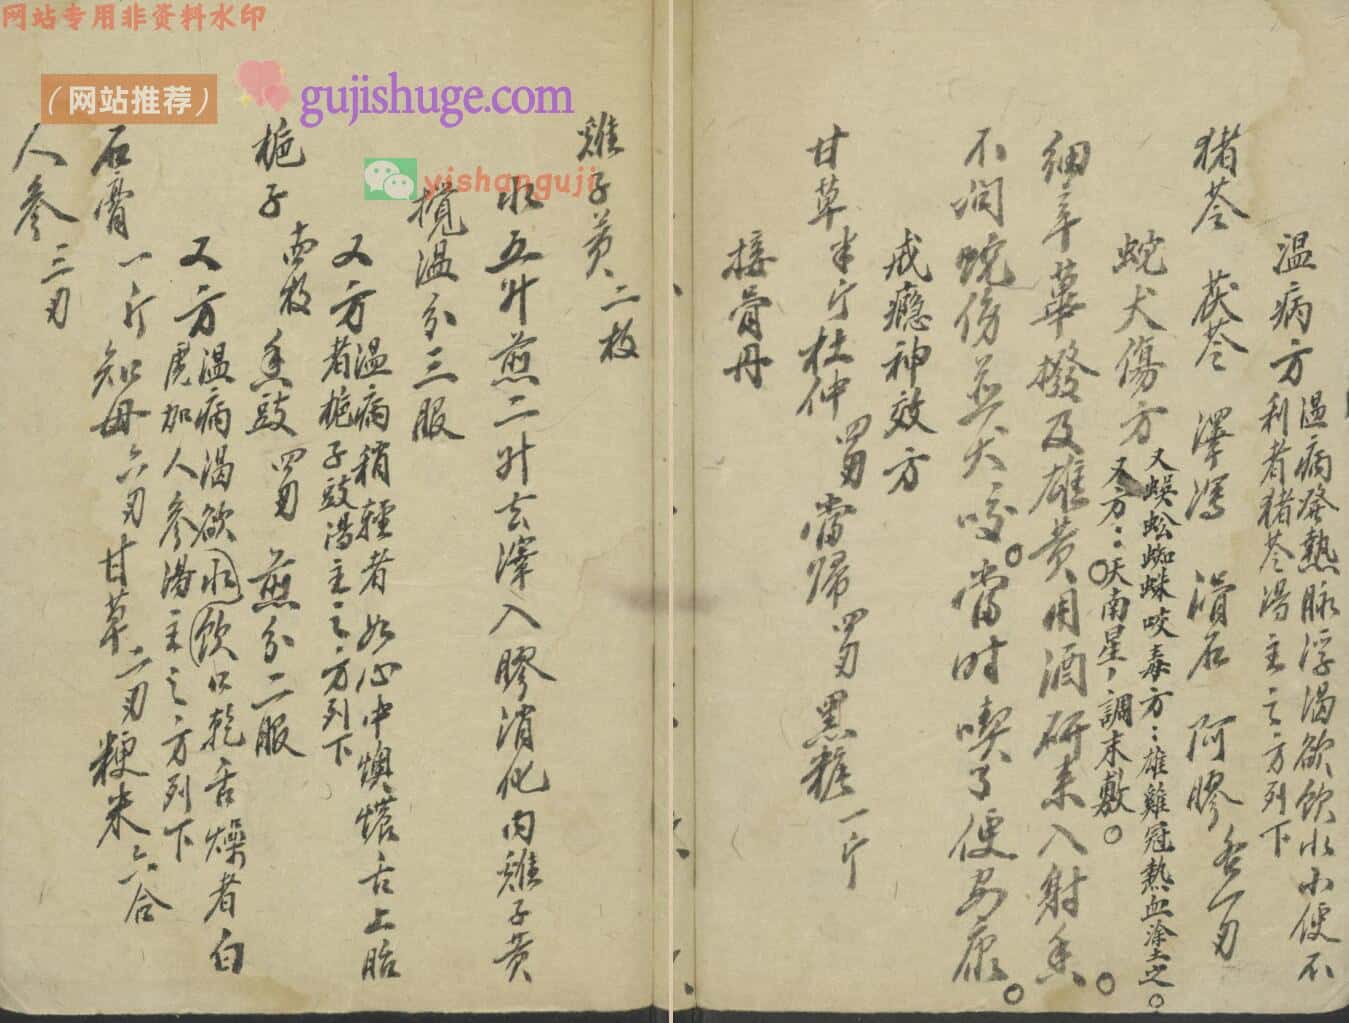 网站专用非资料水印
（网站推荐）
gujishuge.com
yishanguji
温病方
温病發熱脉浮渴欲飲水小便不
利者猪苓湯主之方列下
猪苓 茯苓 澤瀉 滑石 阿膠 各一刄
蛇犬傷方
又蜈蚣蜘蛛咬毒方：雄雞冠熱血涂之。
又方：天南星，調末敷。
細辛蓽撥及雄黄。用酒研来入射香。
不問蛇傷并犬咬。當时喫了便安康。
戒癮神效方
甘草半斤杜仲四刄當归四刄黑糖一斤
接骨丹
雞子黄二枚
水五升煎二升去滓入膠消化内雞子黄
攪温分三服
又方
温病稍輕者如心中燠㷧舌上胎
者梔子豉湯主之方列下
梔子
枚 香豉 四刄 煎分二服
又方
温病渴欲水飲口乾舌燥者白
虎加人参湯主之方列下
石膏一斤知母六刄甘草二刄粳米六合
人参三刄